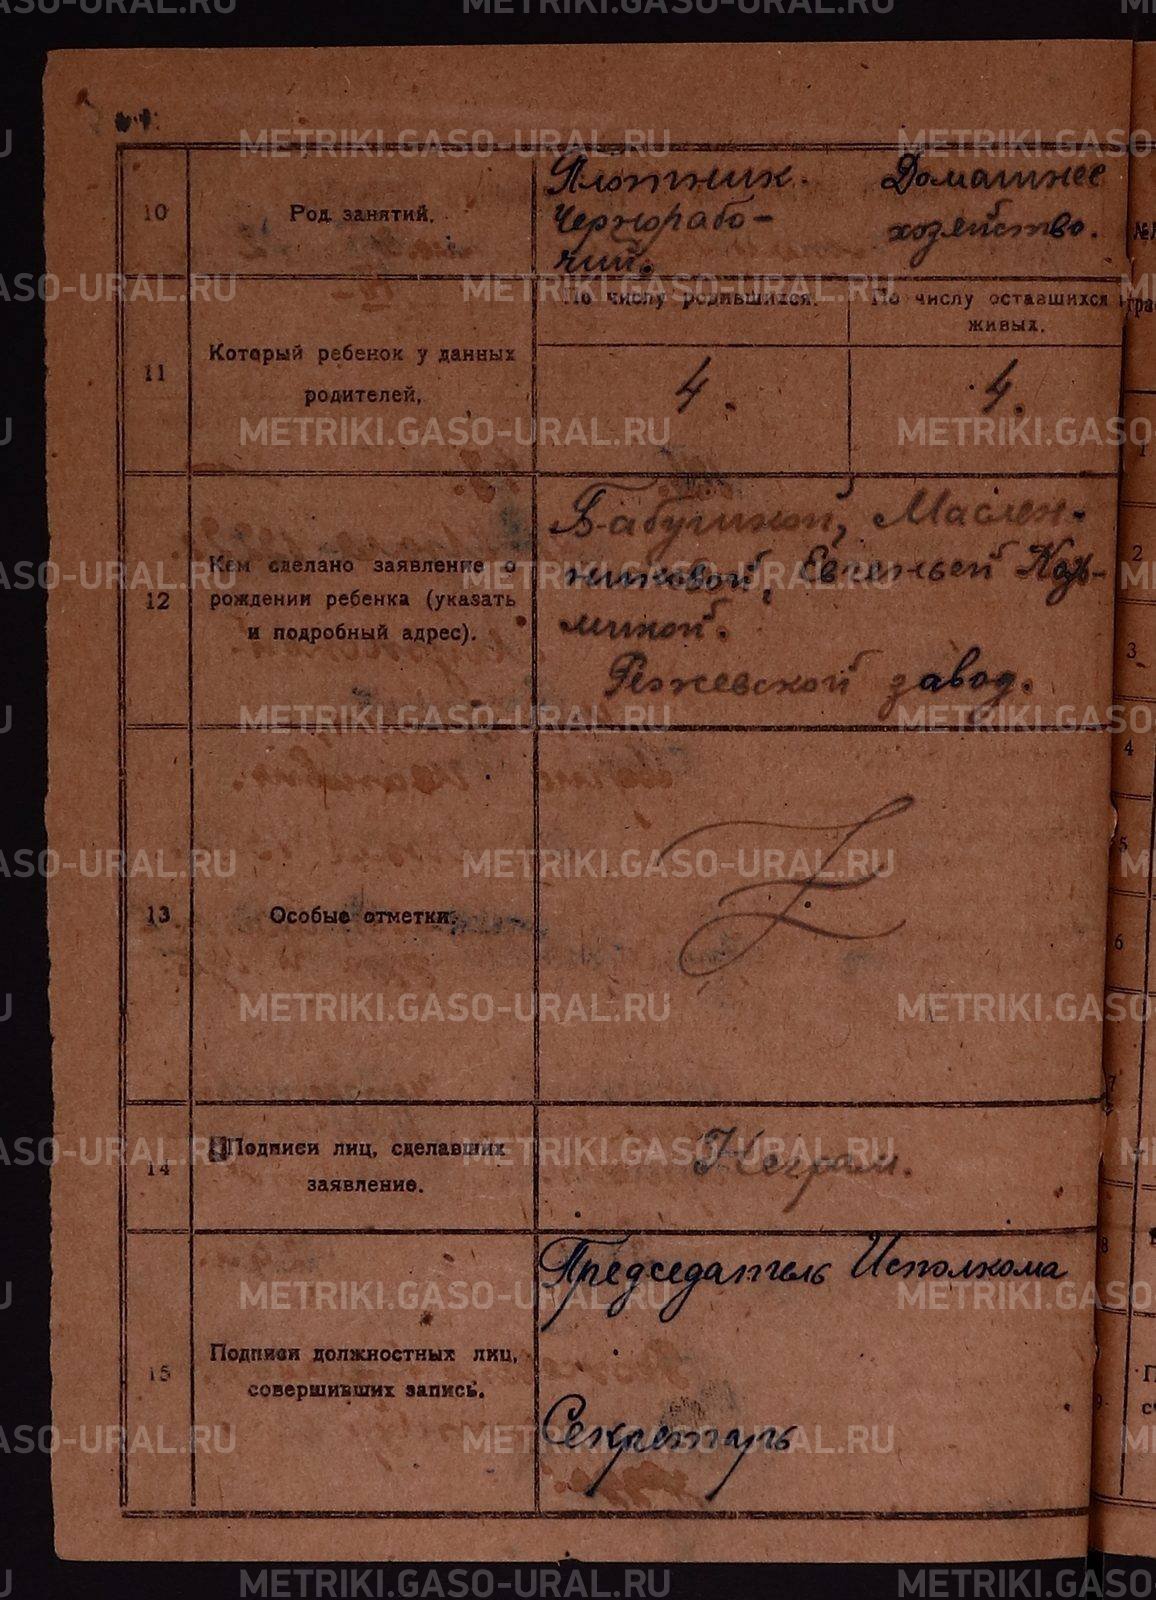 METRIKI.GASO-URAL.RU
10
Род занятий.
Плотник.
Чернорабо-
чий.
Домашнее
хозяйство.
11
Который ребенок у данных
родителей,
По числу родившихся.
По числу оставшихся
живых.
4.
4.
12
Кем сделано заявление о
рождении ребенка (указать
и подробный адрес).
Бабушкой, Маслен-
никовой, Евгеньей Козь-
миной.
Режевской завод.
13
Особые отметки.
14
Подписи лиц, сделавших
заявление.
Неграм.
15
Подписи должностных лиц,
совершивших запись.
Председатель Исполкома
Секретарь
1
2
3
4
5
6
7
8
9